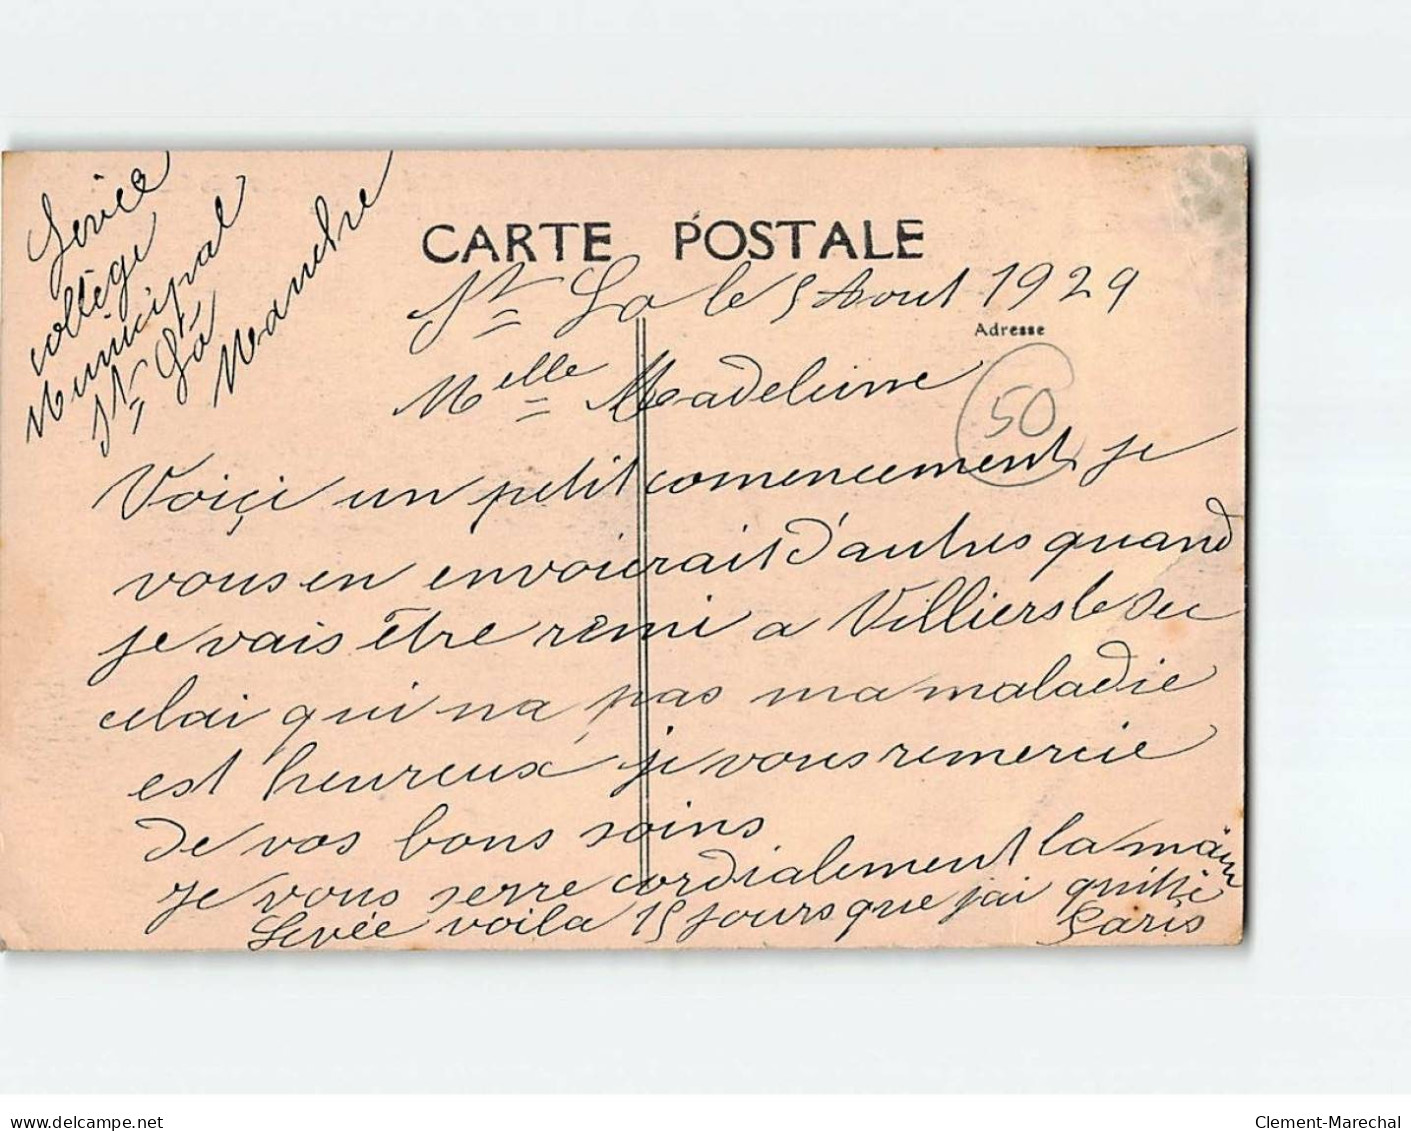 collège
Municipal
St Lô
Manche
CARTE POSTALE
St Lo le 5 Aout 1929
Adresse
Melle Madeleine
50
Voiçi un petit comencement je
vous en envoierait d'autres quand
je vais être rémi a Villiers le Sec
celai qui na pas ma maladie
est heureux je vous remercie
de vos bons soins
je vous serre cordialement la main
voila 15 jours que jai quitté
Paris
delcampe.net
Clement-Marechal